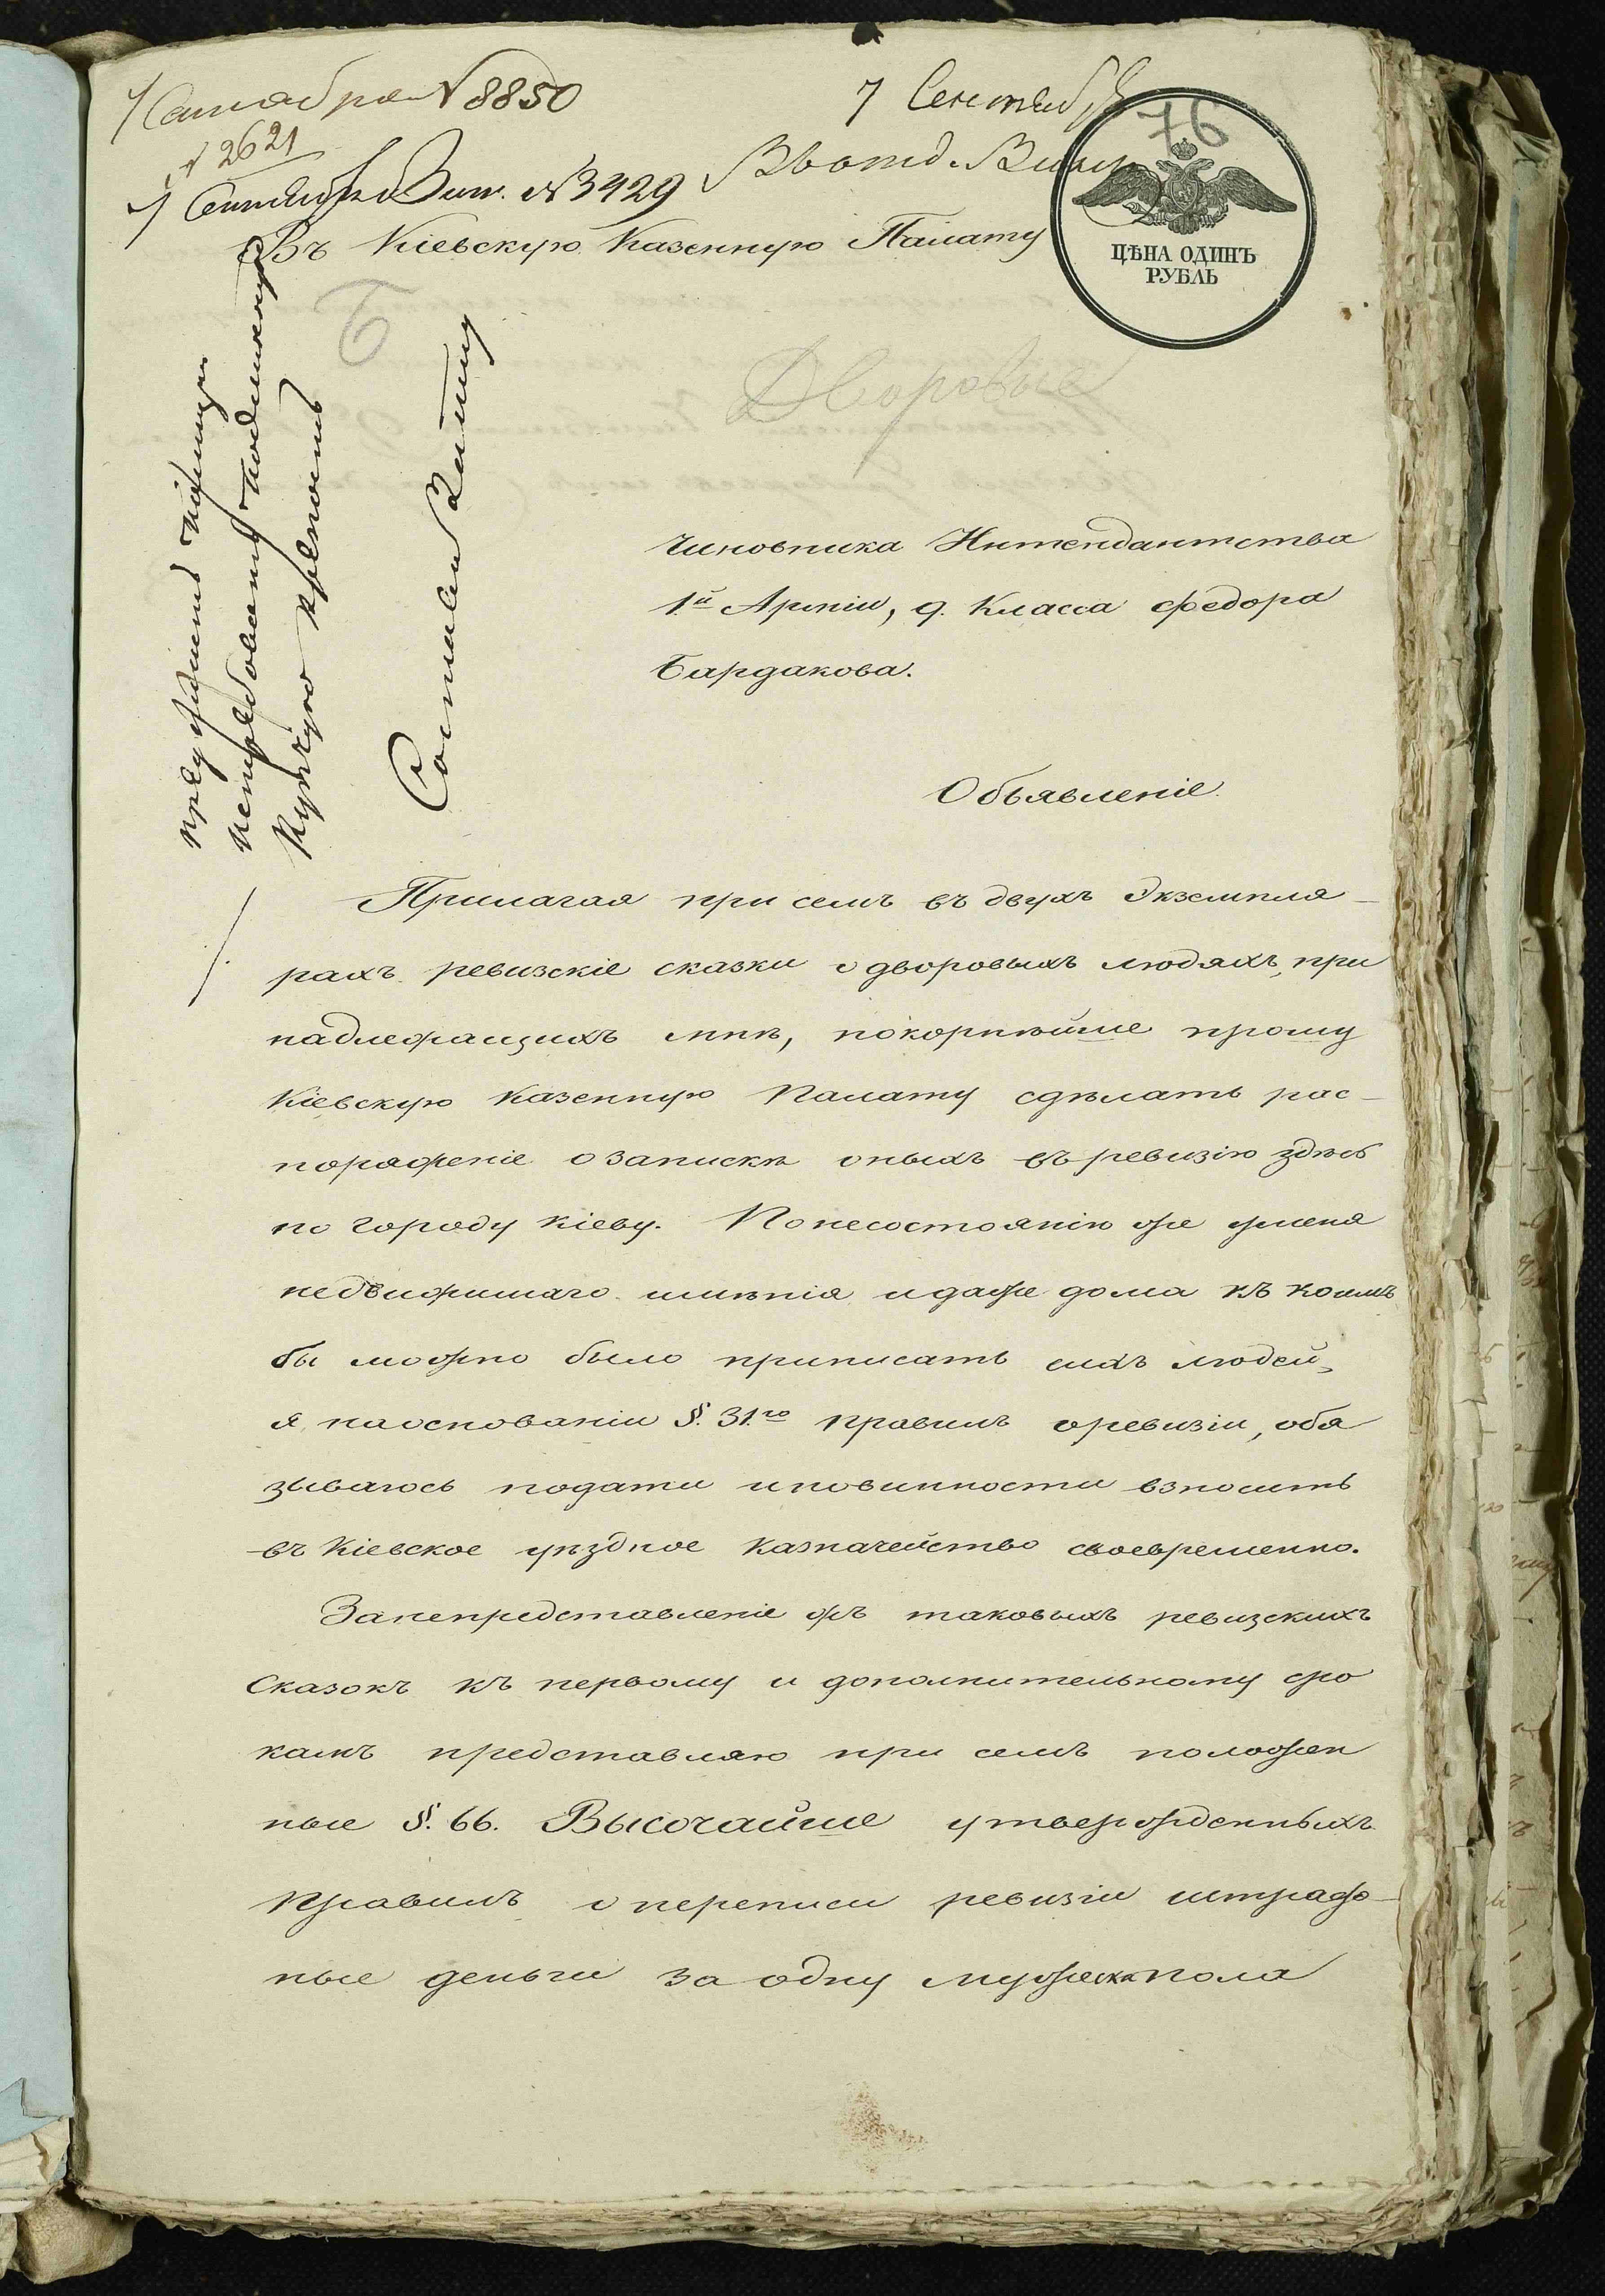 7 Сентября № 8850
7 Сентября
76
№ 2621
7 Сентября Зап. № 3429
Въ отд.
Въ Кіевскую Казенную Палату
ЦѢНА ОДИНЪ
РУБЛЬ
Б
Дворовые
купчую крепость
Чиновника Интендантства
1й Арміи, 9. Класса Федора
Бардакова.
Объявленіе
Прилагая при семъ въ двухъ Экземпля-
рахъ ревизскіе сказки о дворовыхъ людяхъ, при
надлежащихъ мнѣ, покорнѣйше прошу
Кіевскую Казенную Палату сдѣлать рас-
поряженіе о запискѣ оныхъ въ ревизію здѣсь
по городу Кіеву. По несостоянію же уменя
недвижимаго имѣнія и даже дома къ коимъ
бы можно было приписать сихъ людей,
я на основаніи §. 31.го правилъ о ревизіи, обя
зываюсь подати и повинности взносить
въ Кіевское уѣздное Казначейство своевременно.
За непредставленіе жъ таковыхъ ревизскихъ
Сказокъ къ первому и дополнительному сро
камъ представляю при семъ положен
ные §. 66. Высочайше утвержденныхъ
Правилъ о переписи ревизіи штраф-
ные деньги за одну мужеска пола